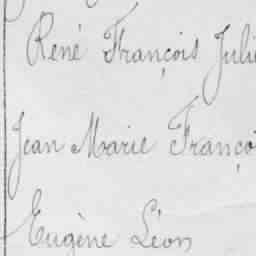 René François Julie
Jean Marie Franço
Eugène Léon